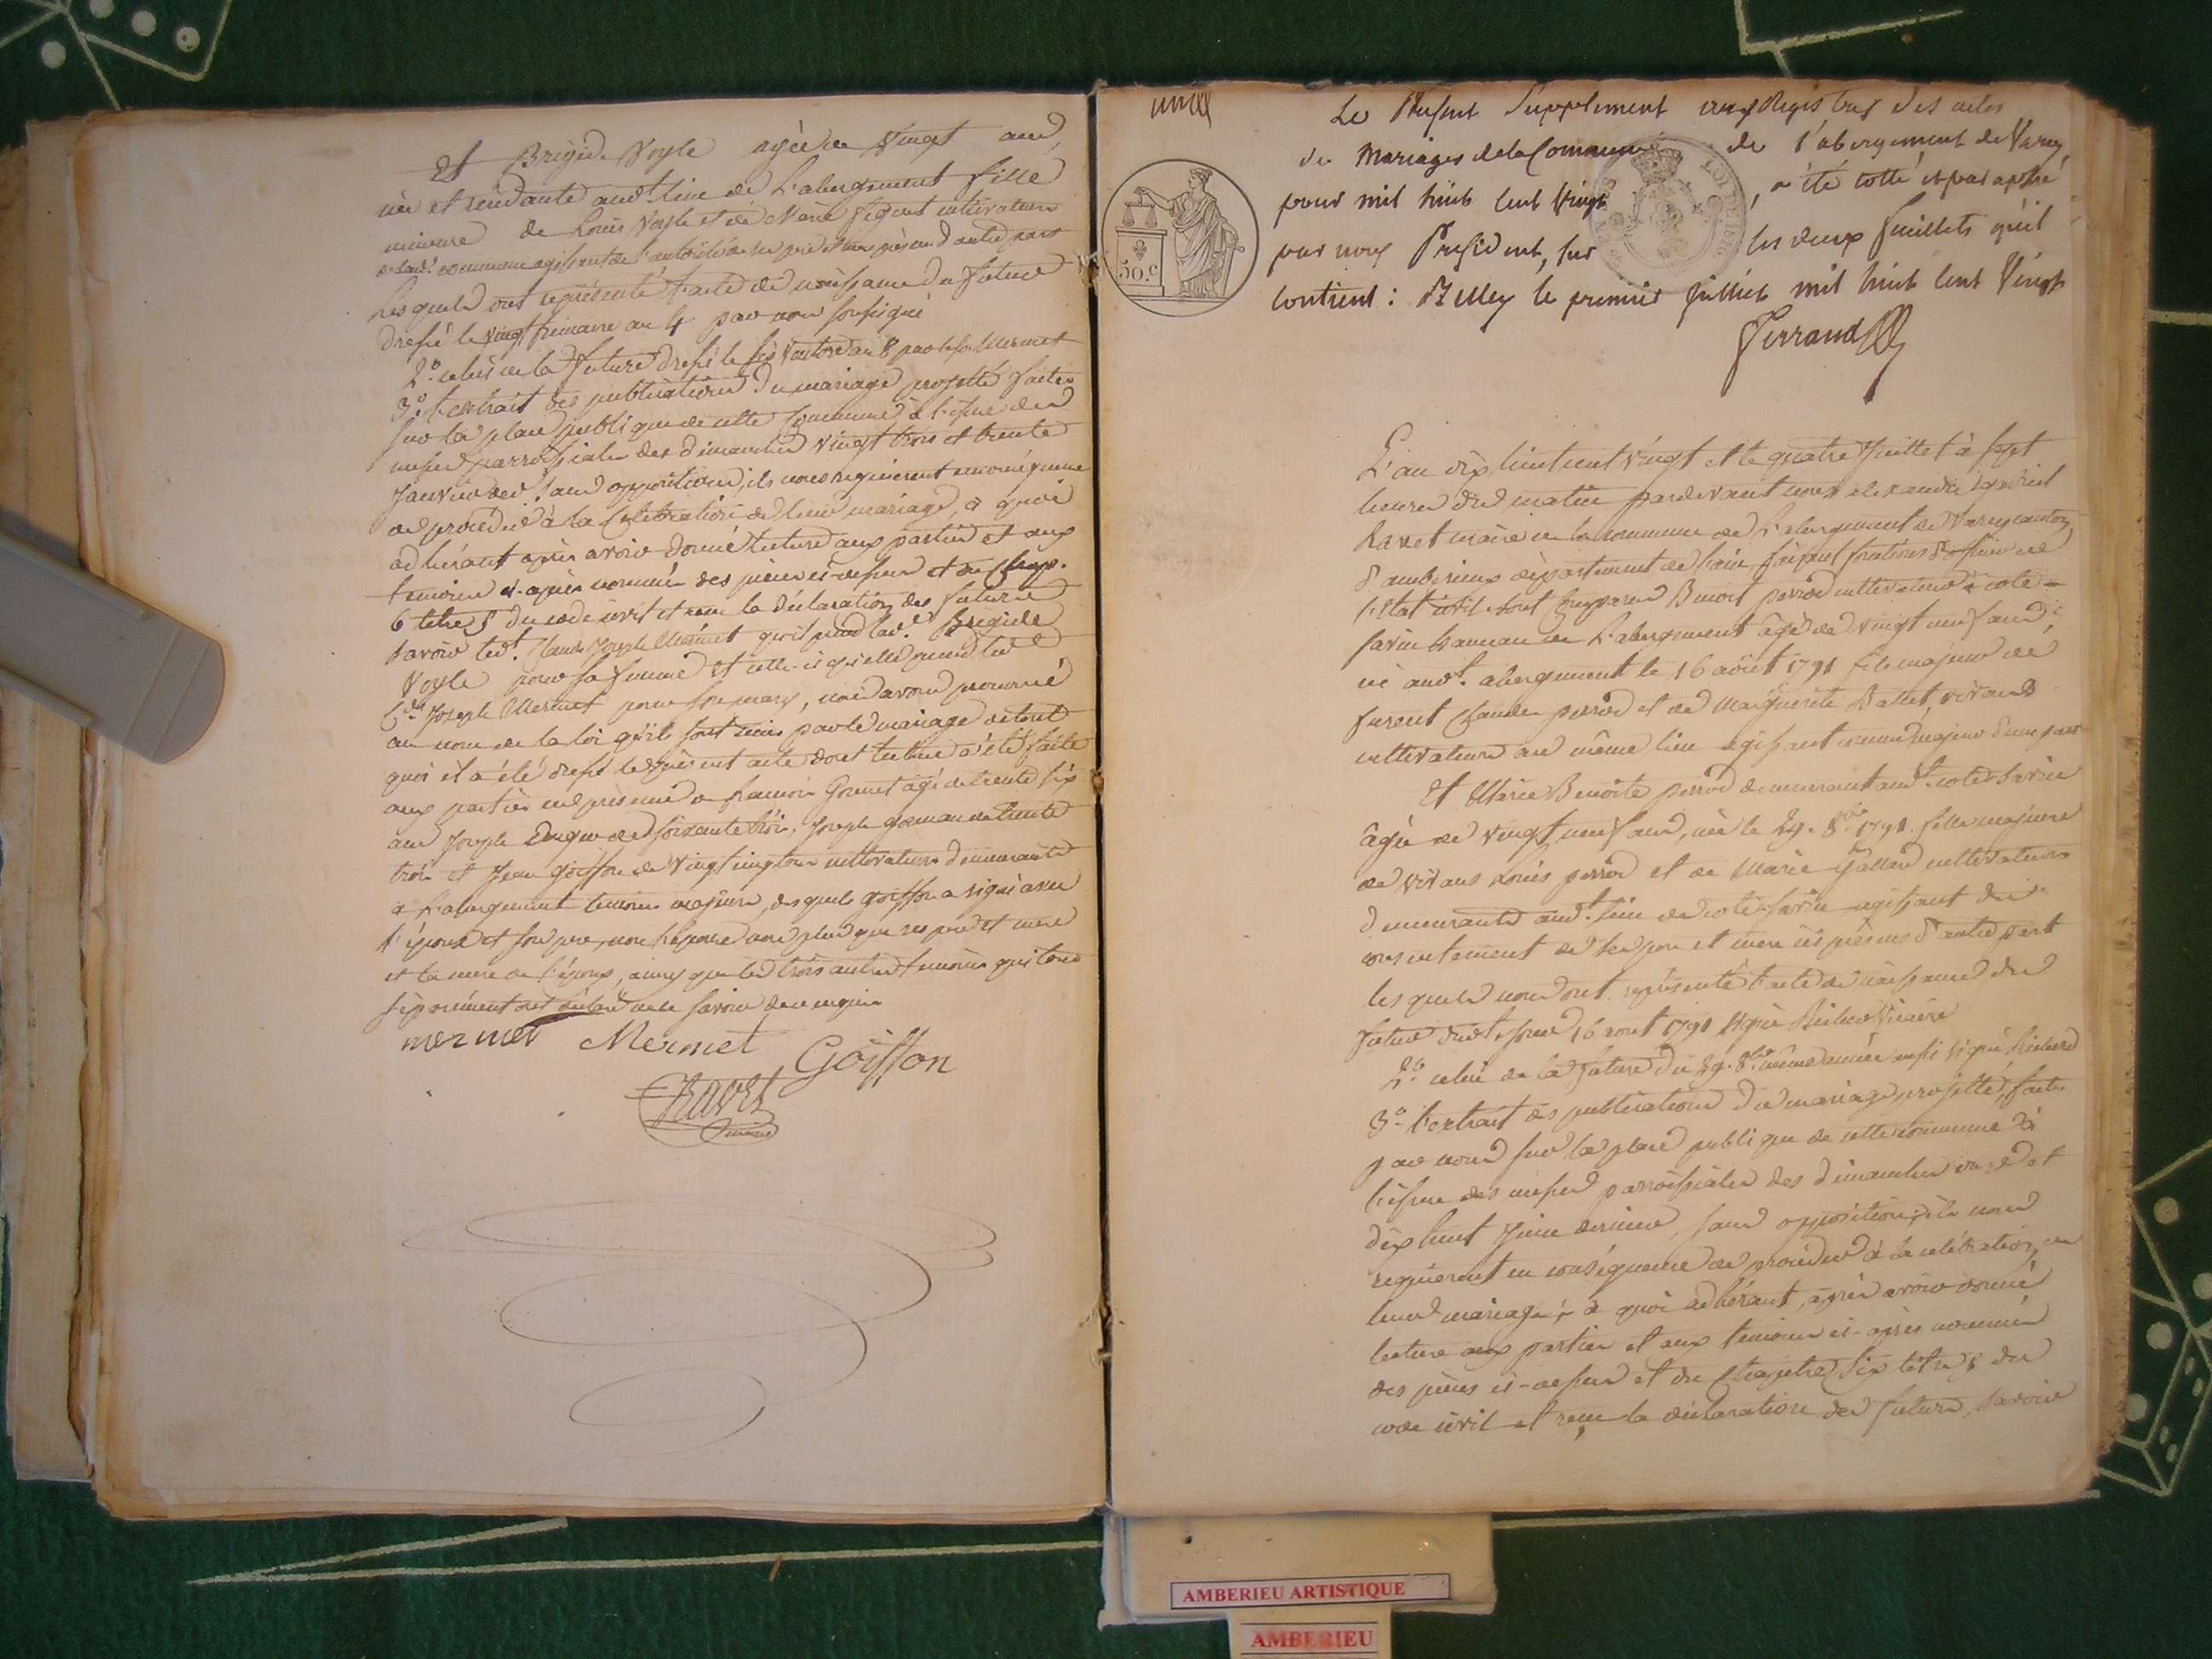 Et Brigide Voyle agée de vingt ans,
née et residante audt lieu de L'abergement fille
mineure de Louis Voyle et de Marie cultivateurs
de lad.e commune agissant de l'autorité de ses père et mère présens d'autre part
Lesquels ont représenté l'acte de naissance du futur
dressé le vingt frimaire an 4 par nous soussigné
2.o celui de la future dressé le six ventose an 8 par le sr Mermet
3.o l'extrait des publications du mariage projetté faites
sur la place publique de cette commune à l'issue des
messes parroissiales des dimanches vingt trois et trente
janvier der. sans opposition, ils nous requierent en conséquence
de procéder à la Célébration de leur mariage, à quoi
adhérant après avoir donné lecture aux parties et aux
temoins ci-après nommés des pièces ci-dessus et du Chap.
6 titre 5 du code civil et reçu la déclaration des futurs
savoir led.t Claude Joseph Mermet qu'il prend lad.e Brigide
Voyle pour sa femme et celle-ci qu'elle prend led
C.de Joseph Mermet pour son mary, nous avons prononcé
au nom de la loi qu'ils sont unis par le mariage de tout
quoi il a été dressé le présent acte dont lecture a été faite
aux parties en présence de françois Gounet agé de trente six
ans Joseph de soixante trois, Joseph de trente
trois et Jean Goiffon de vingt cinq tous cultivateurs demeurants
à L'abergement temoins majeurs, desquels goiffon a signé avec
l'époux et son pere, non l'épouse non plus que ses père et mere
et la mere de l'époux, ainsy que les trois autres temoins qui tous
séparément ont déclaré ne le savoir de ce enquis
mermet Mermet Goiffon
Ravet
maire
Le Present Supplement aux Registres des actes
de Mariages de la Commune de l'abergement de Varey
pour mil huit cent Vingt, a été cotté et paraphé
par nous President, sur les deux feuillets qu'il
contient: Belley le premier juillet mil huit cent Vingt
Ferrand
50.c
L'an dix huit cent vingt et le quatre Juillet à sept
heures du matin pardevant nous alexandre gabriel
Ravet maire de la commune de L'abergement de Varey canton
d'amberieux département de l'ain, faisant fonctions d'officier de
l'Etat civil, sont Comparus Benoit perrod cultivateur à cote-
savin hameau de L'abergement âgé de vingt neuf ans,
né aud.t abergement le 16 août 1791 fils majeur de
furent Claude perrod et de Marguerite Ballet, vivans
cultivateurs au même lieu agissant comme majeur d'une part
Et Marie Benoite perrod demeurant aud.t cote savin
âgée de vingt neuf ans, née le 29. 8bre 1791 fille majeure
de vivans Louis perrod et de Marie Galland cultivateurs
demeurants aud.t lieu de cote-savin agissant du
consentement de ses pere et mere ici présens d'autre part
lesquels nous ont représenté l'acte de naissance du
futur dud.t jour 16 aout 1791 signé vicaire
2.o celui de la future du 29. 8bre même année aussi signé
3.o l'extrait des publications du mariage projetté, faites
par nous sur la place publique de cette commune à
l'issue des messes parroissiales des dimanches onze et
dix huit Juin dernier, sans opposition; ils nous
requierent en conséquence de procéder à la célébration de
leur mariage; à quoi adhérant, après avoir donné
lecture aux parties et aux temoins ci-après nommés
des pièces ci-dessus et du Chapitre six titre 5 du
code civil et reçu la déclaration des futurs, savoir
AMBERIEU ARTISTIQUE
AMBERIEU